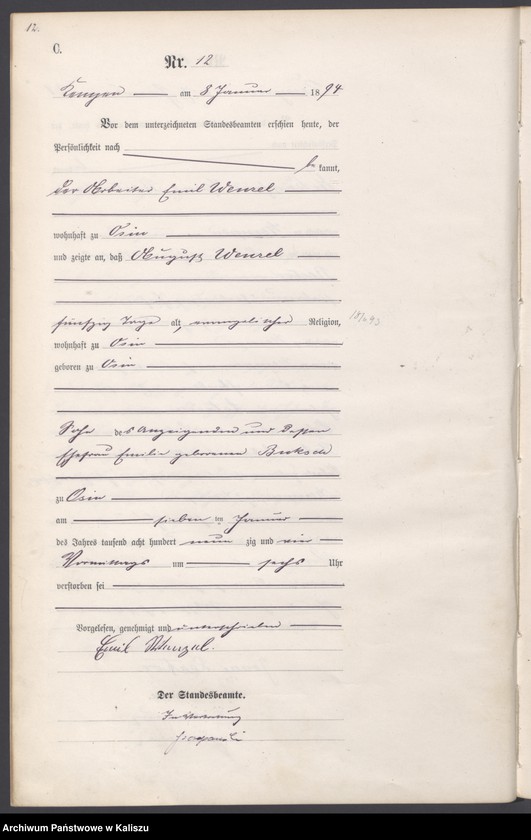 12.
C.
Nr. 12
Kempen am 8 Januar 1894
Vor dem unterzeichneten Standesbeamten erschien heute, der
Persönlichkeit nach
be kannt,
der Arbeiter Emil Wenzel
wohnhaft zu Osin
und zeigte an, daß August Wenzel
fünfzig Tage alt, evangelischer Religion,
wohnhaft zu Osin
geboren zu Osin
Sohn des Anzeigenden und dessen
Ehefrau Emilie geborenen
zu Osin
am sieben ten Januar
des Jahres tausend acht hundert neun zig und vier
Vormittags um sechs Uhr
verstorben sei
Vorgelesen, genehmigt und unterschrieben
Emil Wenzel.
Der Standesbeamte.
In Vertretung
Archiwum Państwowe w Kaliszu